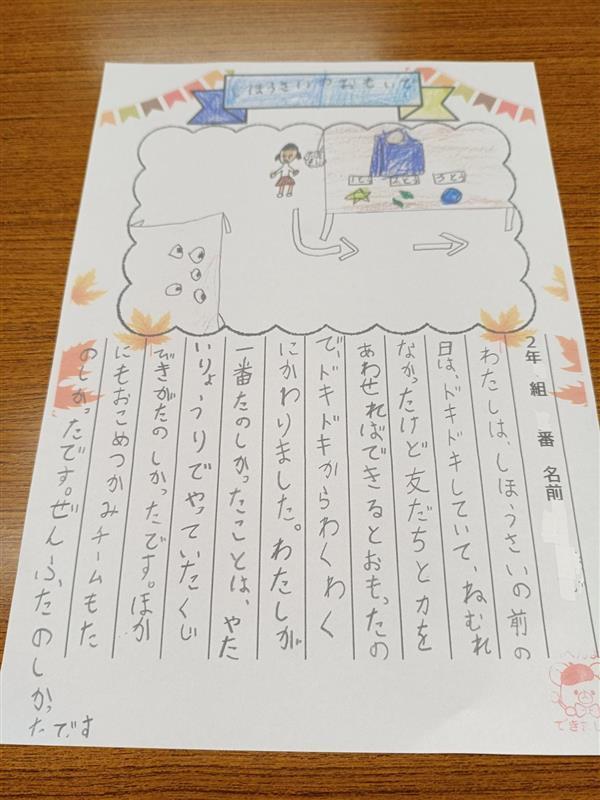 しほうさいのおもいで
1とう
2とう
3とう
2年 組 番 名前
わたしは、しほうさいの前の
日は、ドキドキしていて、ねむれ
なかったけど友だちと力を
あわせればできるとおもったの
で、ドキドキからわくわく
にかわりました。わたしが
一番たのしかったことは、やた
いりょうりでやっていたくじ
できがたのしかったです。ほか
にもおこめつかみチームもた
のしかったです。ぜんぶたのしかっ
たです